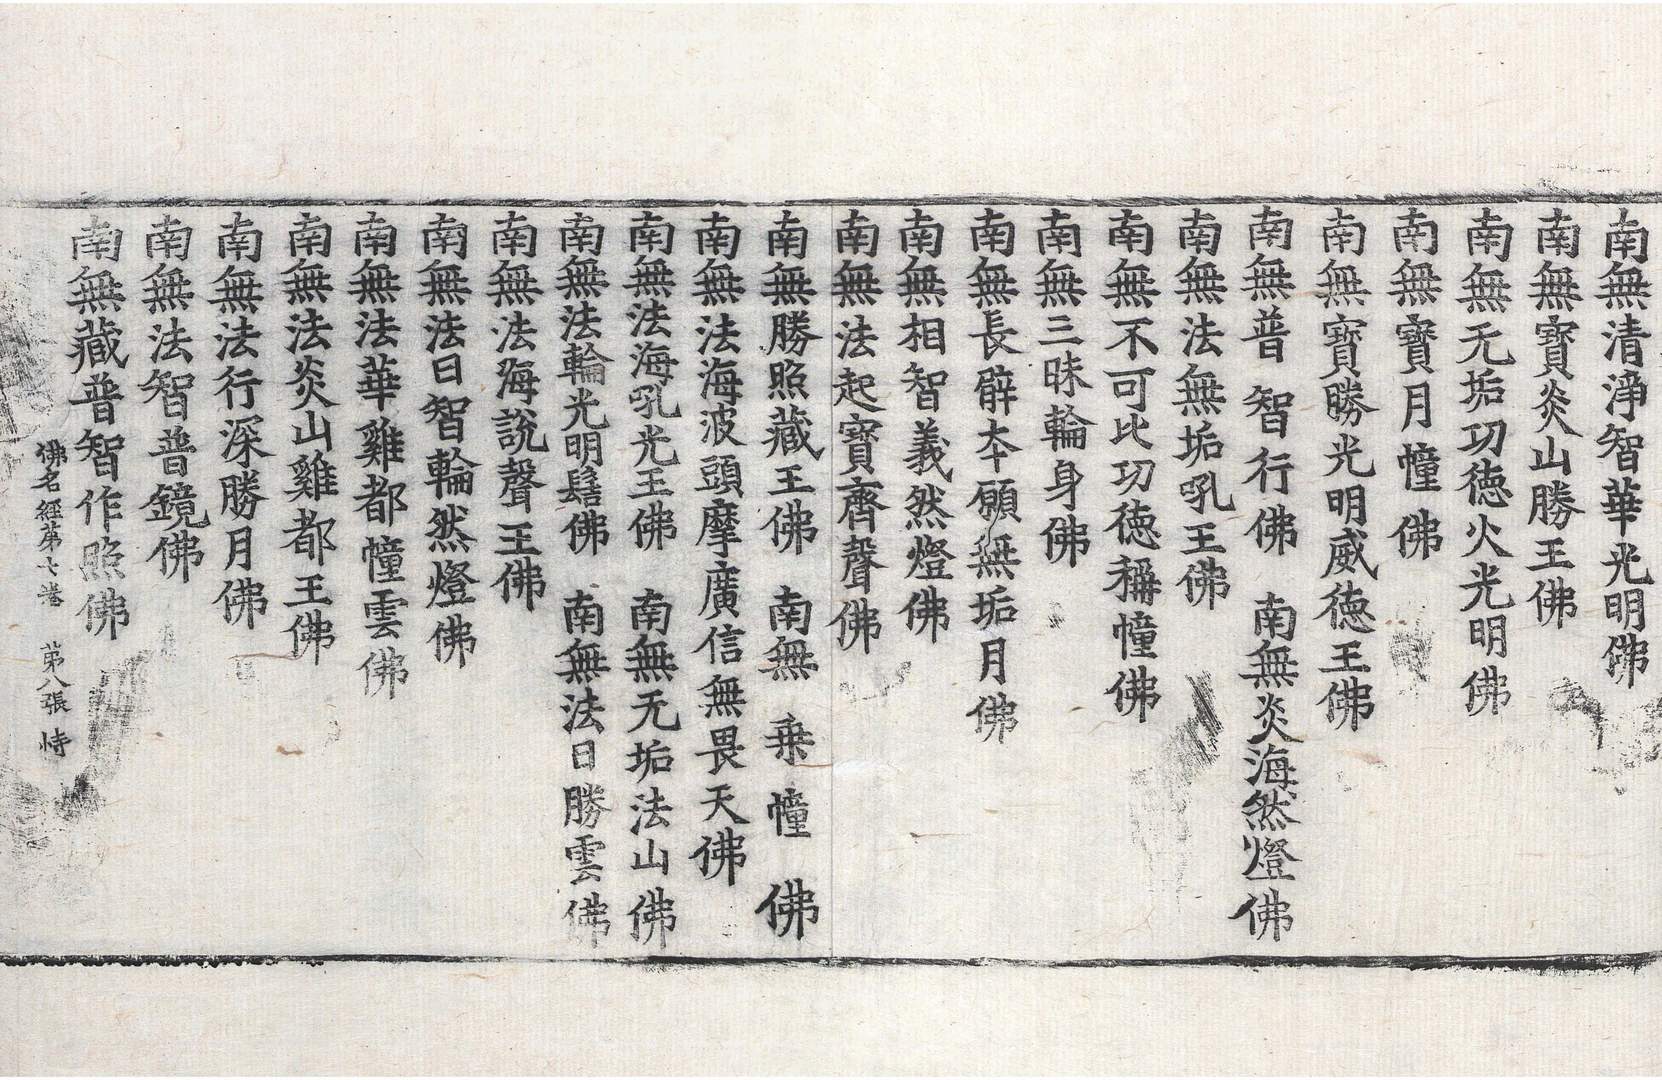 南無清淨智華光明佛
南無寳炎山勝王佛
南無无垢功徳火光明佛
南無寳月幢佛
南無寳勝光明威徳王佛
南無普智行佛　南無炎海然燈佛
南無法無垢吼王佛
南無不可比功徳稱幢佛
南無三昧輪身佛
南無長臂本願無垢月佛
南無相智義然燈佛
南無法起寳齊聲佛
南無勝照藏王佛　南無乗幢佛
南無法海波頭摩廣信無畏天佛
南無法海吼光王佛　南無无垢法山佛
南無法輪光明髻佛　南無法日勝雲佛
南無法海說聲王佛
南無法日智輪然燈佛
南無法華雞都幢雲佛
南無法炎山雞都王佛
南無法行深勝月佛
南無法智普鏡佛
南無藏普智作照佛
佛名經第七卷　第八張　恃